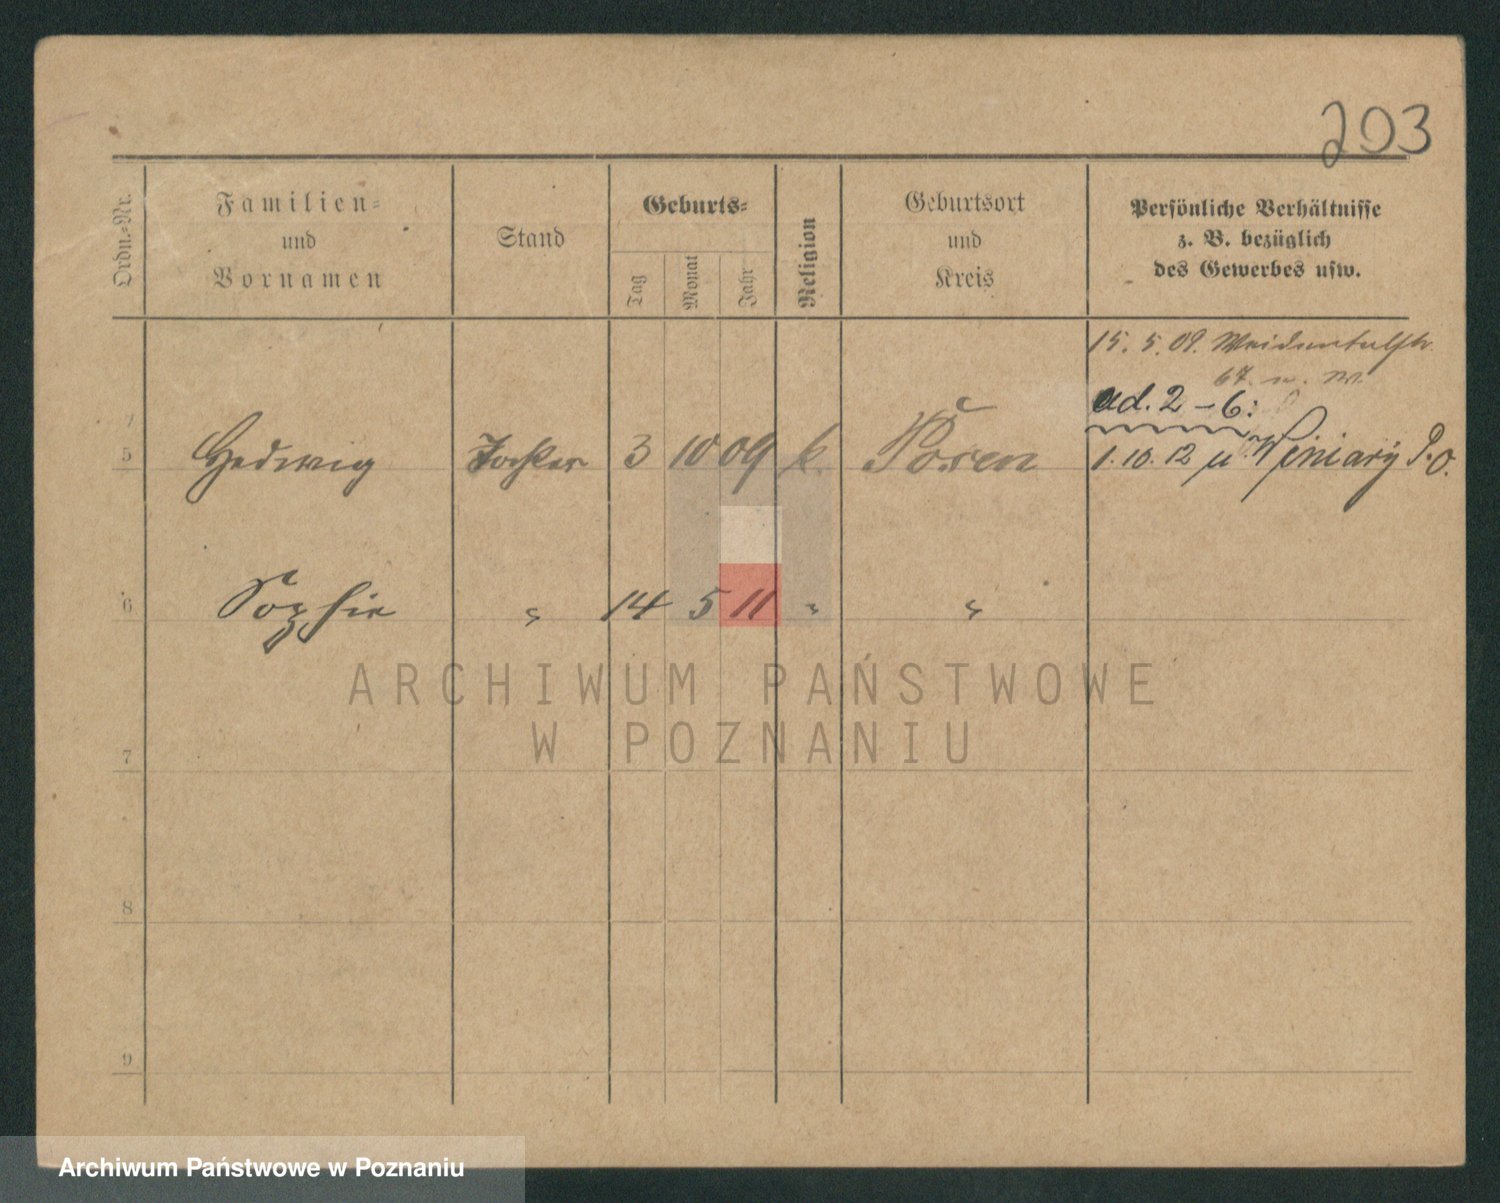 203
Ordn.-Nr.
Familien-
und
Vornamen
Stand
Geburts-
Tag
Monat
Jahr
Religion
Geburtsort
und
Kreis
Persönliche Verhältnisse
z. B. bezüglich
des Gewerbes usw.
15. 5. 09.
67
ad. 2 - 6:
5 Hedwig Tochter 3 10 09 k. Posen 1.10.12 Winiary P.O.
6 Sophie " 14 5 11 " "
7
8
9
ARCHIWUM PAŃSTWOWE
W POZNANIU
Archiwum Państwowe w Poznaniu